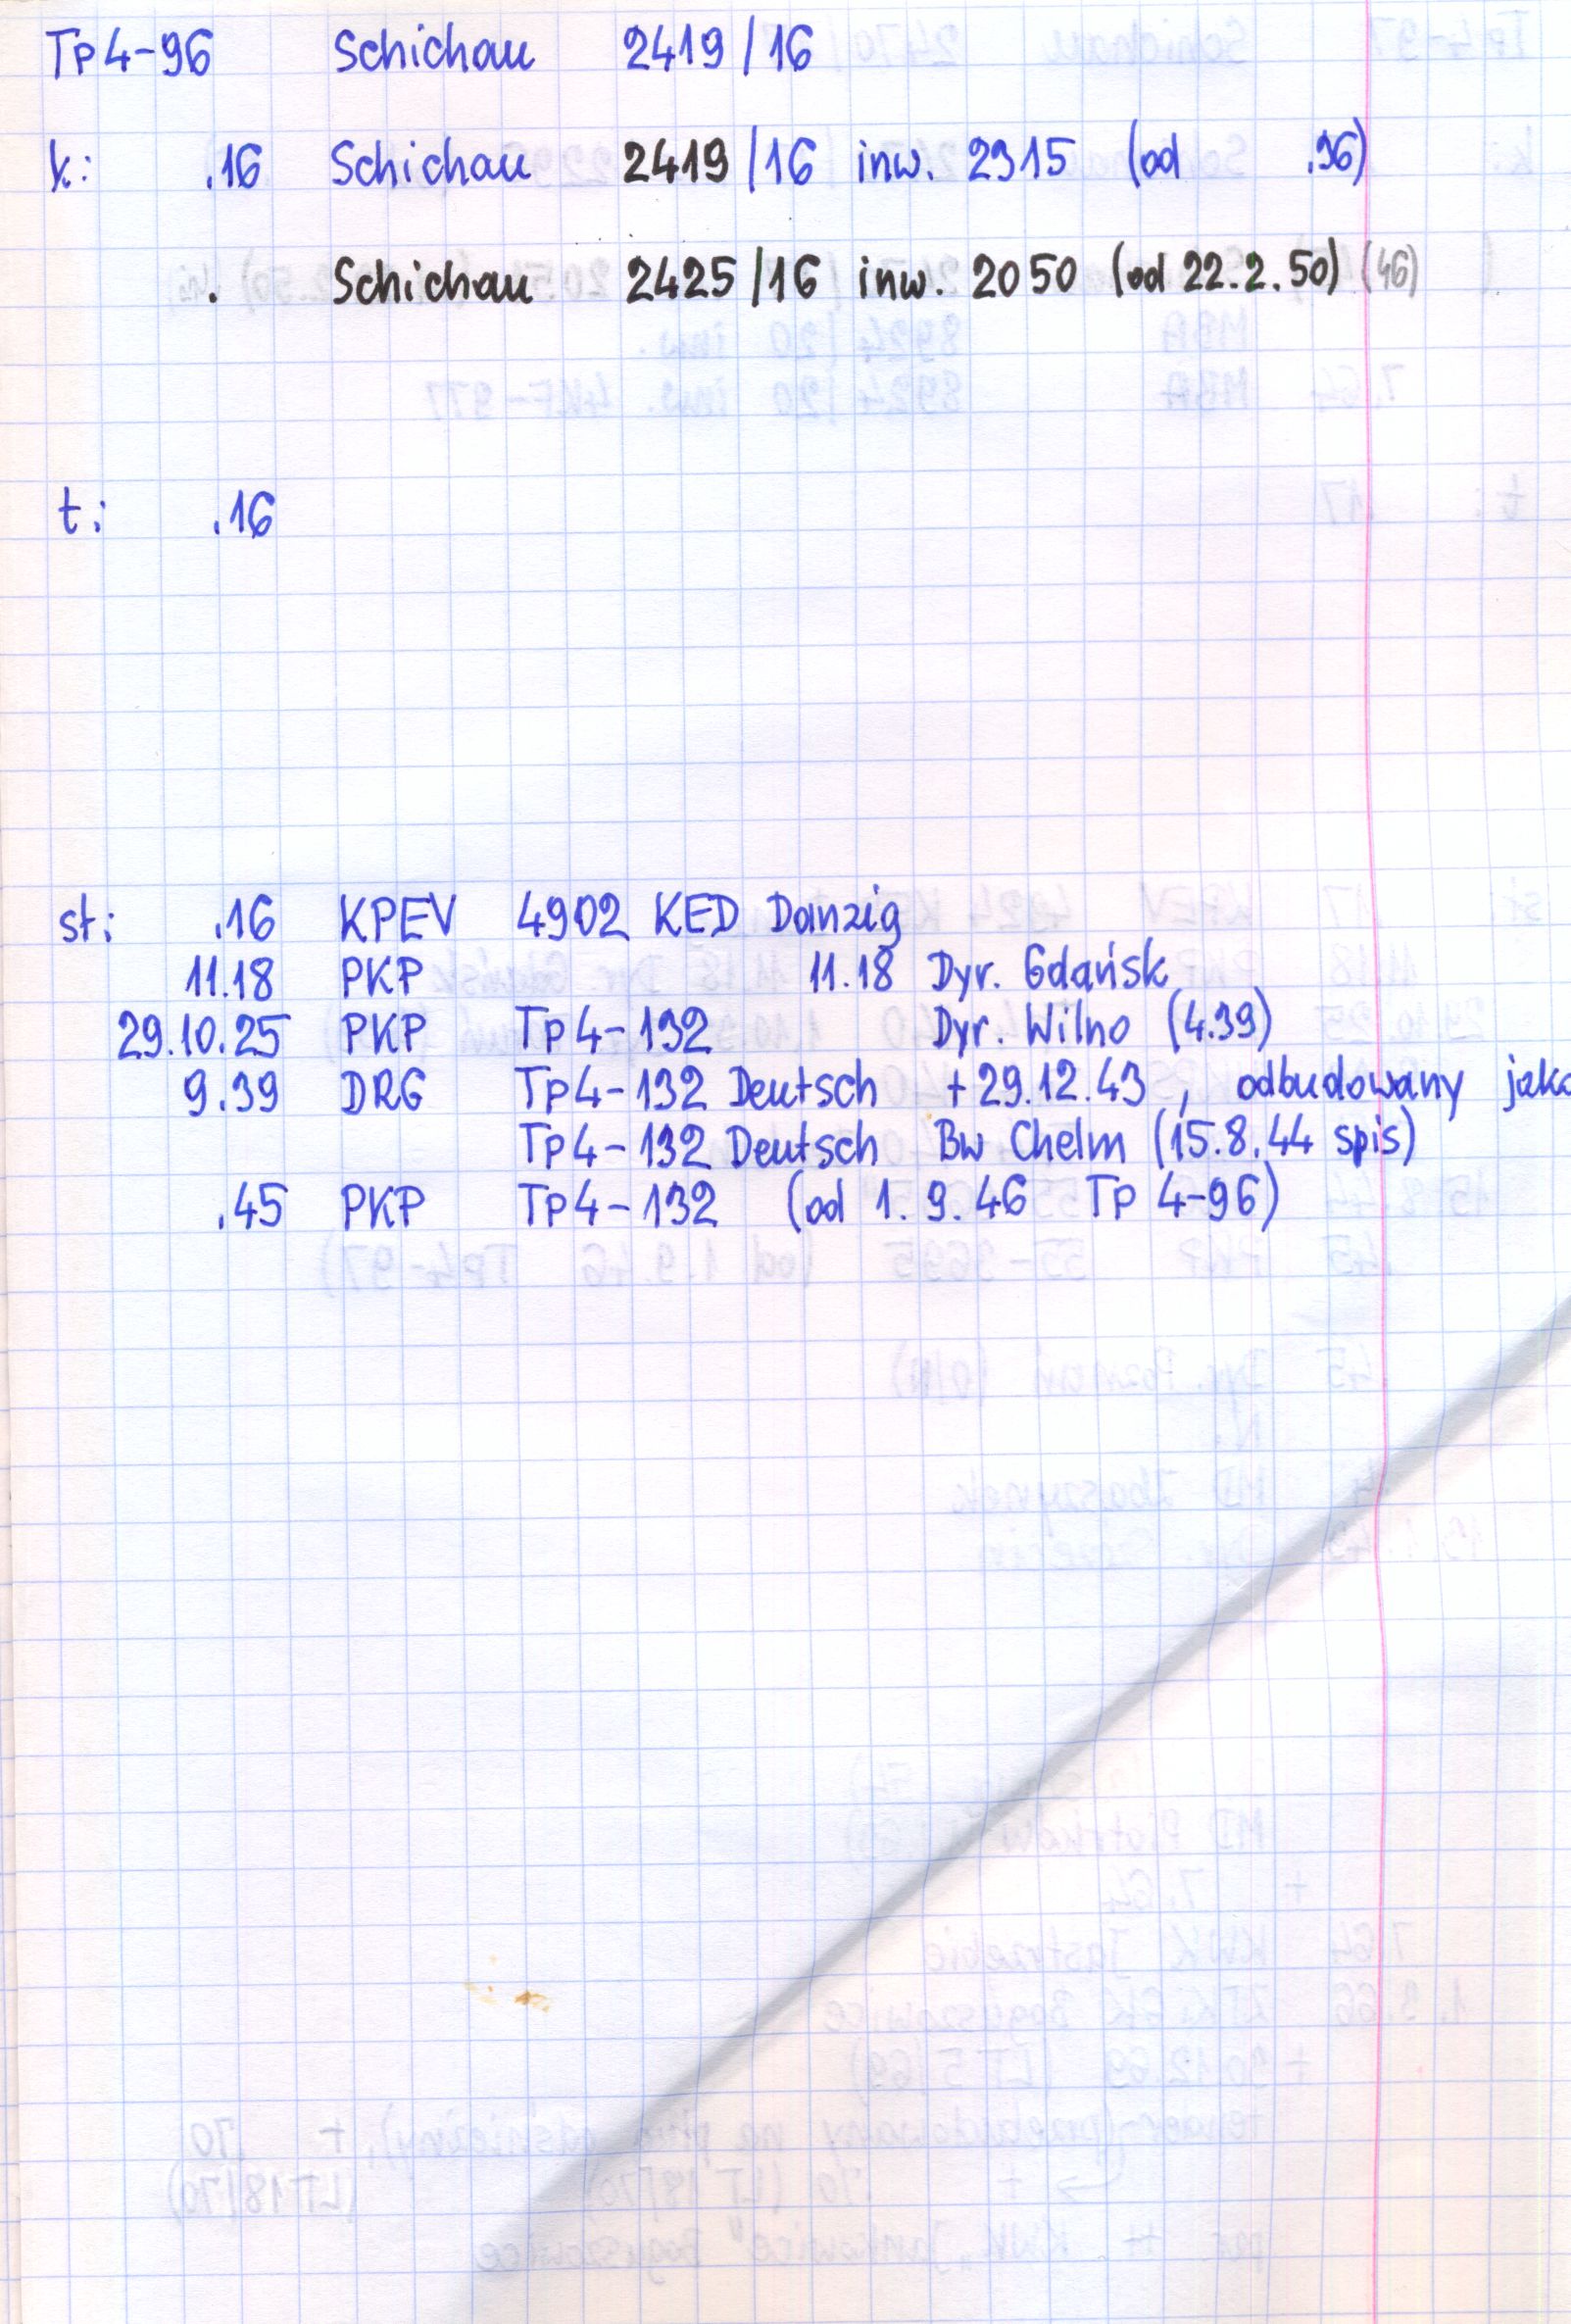 Tp4-96 Schichau 2419/16
k: .16 Schichau 2419/16 inw. 2315 (od .36)
. Schichau 2425/16 inw. 2050 (od 22.2.50) (46)
t: .16
st: .16 KPEV 4902 KED Danzig
11.18 PKP 11.18 Dyr. Gdańsk
29.10.25 PKP Tp4-132 Dyr. Wilno (4.39)
9.39 DRG Tp4-132 Deutsch +29.12.43, odbudowany jako
Tp4-132 Deutsch Bw Chelm (15.8.44 spis)
.45 PKP Tp4-132 (od 1.9.46 Tp 4-96)